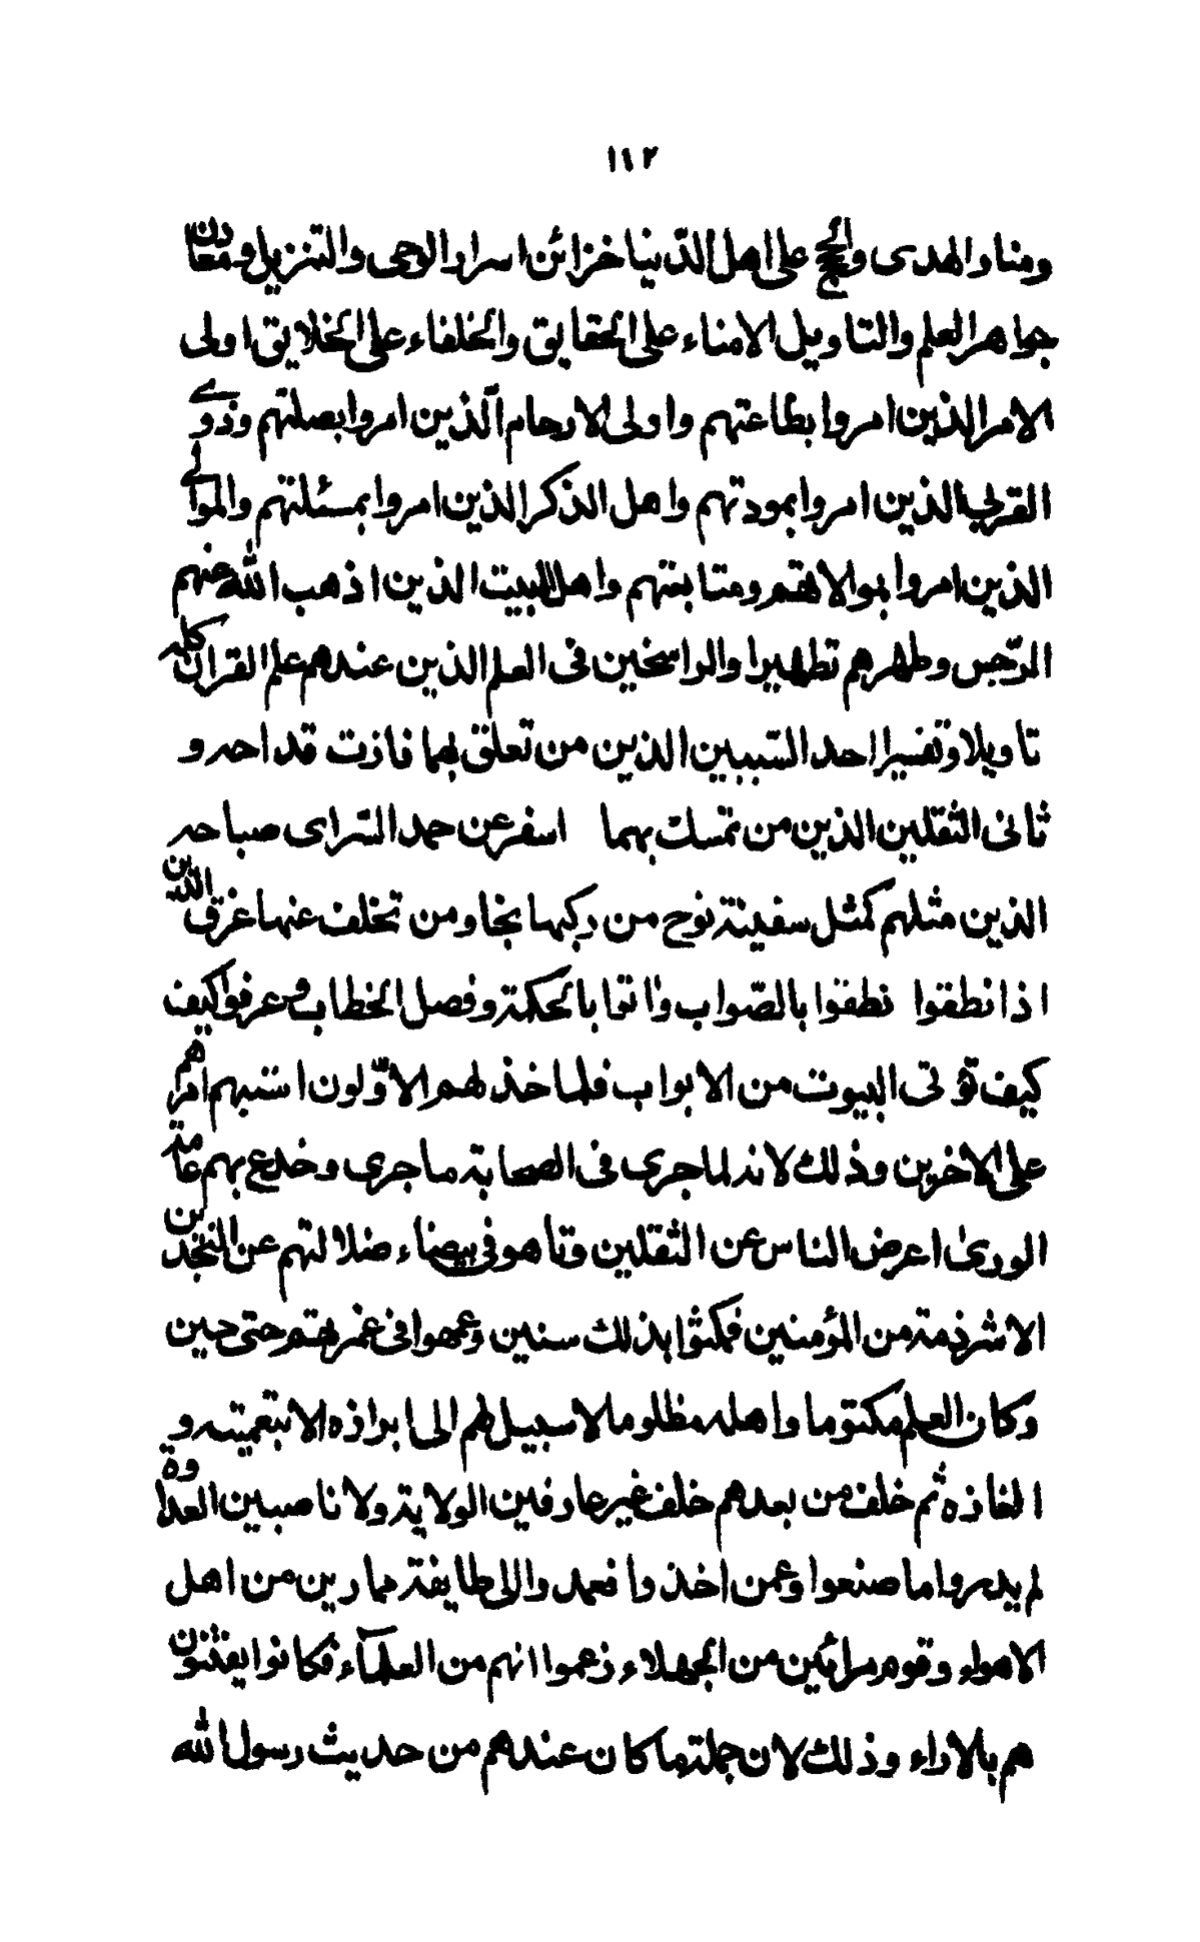 ١١٢
ومنار الهدى والحجج على اهل الدّنيا خزائن اسرار الوحى والتنزيل ومعادن
جواهر العلم والتاويل الامناء على الحقايق والخلفاء على الخلايق اولى
الامر الذين امروا بطاعتهم واولى الارحام الّذين امروا بصلتهم وذوى
القربى الذين امروا بمودتهم واهل الذكر الذين امروا بمسئلتهم والموالى
الذين امروا بموالاتهم ومتابعتهم واهل البيت الذين اذهب الله عنهم
الرّجس وطهرهم تطهيرا والراسخين فى العلم الذين عندهم علم القران كله
تاويلا وتفسيرا احد السّببين الذين من تعلق بهما فازت قداحه و
ثانى الثقلين الذين من تمسك بهما اسفر عن حمد السّراى صباحه
الذين مثلهم كمثل سفينة نوح من ركبها نجا ومن تخلف عنها غرق الذين
اذا نطقوا نطقوا بالصّواب واتوا بالحكمة وفصل الخطاب وعرفوا كيف
كيف تؤتى البيوت من الابواب فلما خذلهم الاوّلون اشتبهم امرهم
على الاخرين وذلك لانه لما جرى فى الصحابة ما جرى وخدع بهم عامة
الورى اعرض الناس عن الثقلين وتاهو فى بيضاء ضلالتهم عن النجدين
الا شرذمة من المؤمنين فمكثوا بذلك سنين وعمهوا فى غمرتهم حتى حين
وكان العلم مكتوما واهله مظلوما لا سبيل لهم الى ابرازه الا بتعميته و
الغازه ثم خلف من بعدهم خلف غير عارفين الولاية ولا ناصبين العداوة
لم يدروا ما صنعوا وعمن اخذوا فعمدوا الى طايفة ممارين من اهل
الاهواء وقوم مرائين من الجهلاء زعموا انهم من العلمآء فكانوا يفتنون
هم بالاراء وذلك لان جملتها كان عندهم من حديث رسول الله